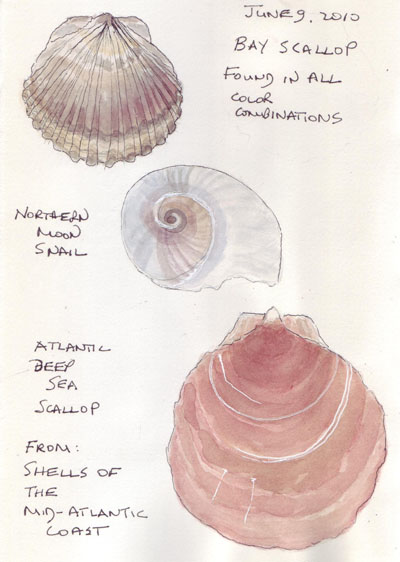 JUNE 9, 2010
BAY SCALLOP
FOUND IN ALL
COLOR
COMBINATIONS
NORTHERN
MOON
SNAIL
ATLANTIC
DEEP
SEA
SCALLOP
FROM:
SHELLS OF
THE
MID-ATLANTIC
COAST